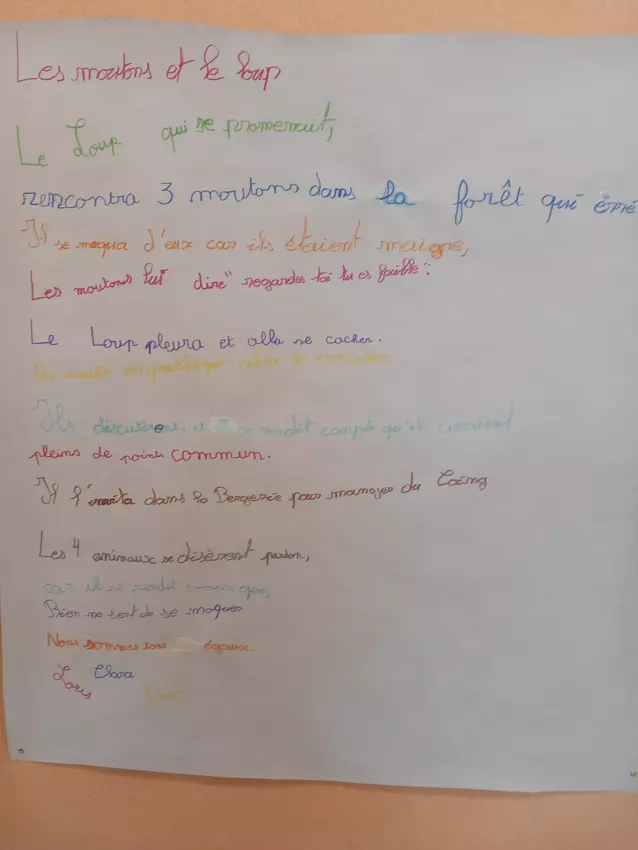 Les moutons et le loup
Le Loup qui se promenait,
rencontra 3 moutons dans la forêt qui érré
Il se moqua d'eux car ils étaient maigre,
Les moutons lui dire " regardes toi tu es faible".
Le Loup pleura et alla se cacher.
Un empathique alla le
Ils discutèrent, et se rendit compte qu'ils avaient
pleins de points commun.
Il l'invita dans la Bergerie pour manger du
Les 4 animaux se disèrent pardon,
car il se rendit compte que,
Rien ne sert de se moquer
Nous sommes tous égaux.
Clara
Loris